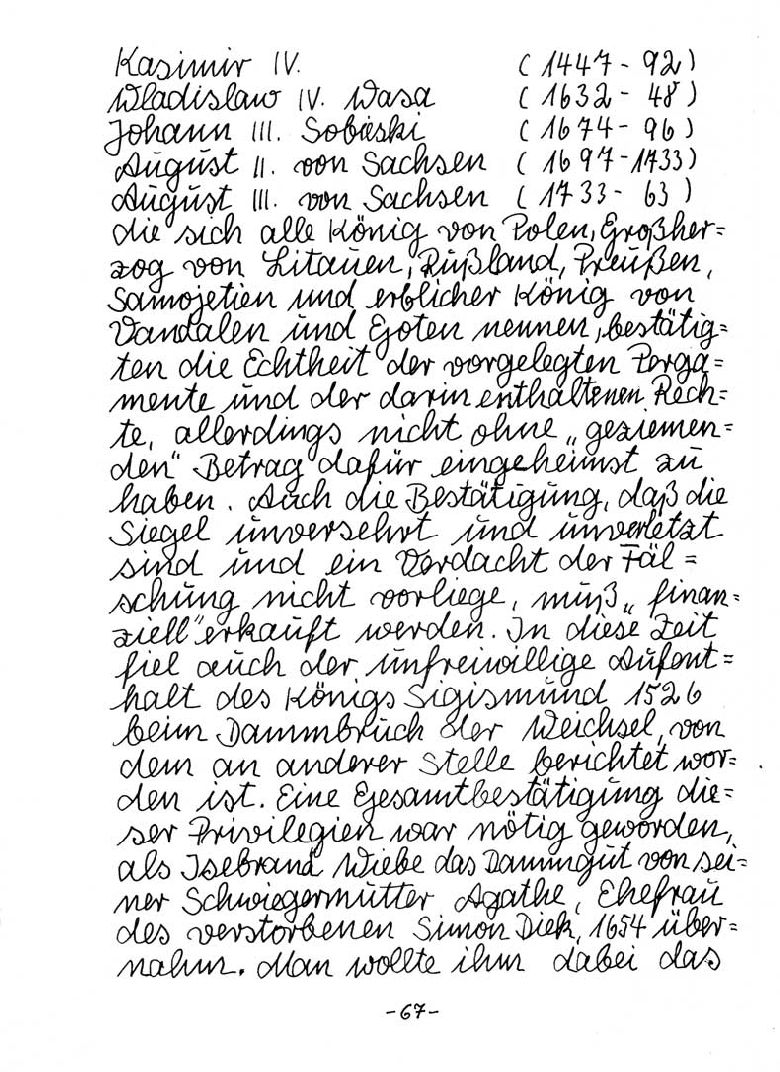 Kasimir IV. (1447-92)
Wladislaw IV. Wasa (1632-48)
Johann III. Sobieski (1674-96)
August II. von Sachsen (1697-1733)
August III. von Sachsen (1733-63)
die sich alle König von Polen, Großher=
zog von Litauen, Rußland, Preußen,
Samojetien und erblicher König von
Vandalen und Goten nennen, bestätig=
ten die Echtheit der vorgelegten Perga=
mente und der darin enthaltenen Rech=
te, allerdings nicht ohne „geziemen=
den" Betrag dafür eingeheimst zu
haben. Auch die Bestätigung, daß die
Siegel unversehrt und unverletzt
sind und ein Verdacht der Fäl=
schung nicht vorliege, muß „finan=
ziell" erkauft werden. In diese Zeit
fiel auch der unfreiwillige Aufent=
halt des Königs Sigismund 1526
beim Dammbruch der Weichsel, von
dem an anderer Stelle berichtet wor=
den ist. Eine Gesamtbestätigung die=
ser Privilegien war nötig geworden,
als Isebrand Wiebe das Dammgut von sei=
ner Schwiegermutter Agathe, Ehefrau
des verstorbenen Simon Diek, 1654 über=
nahm. Man wollte ihm dabei das
-67-